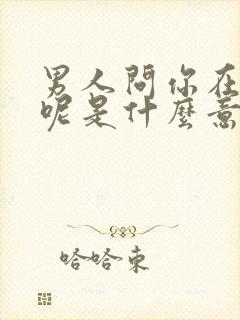 男人問你在
呢是什麼意
哈哈東